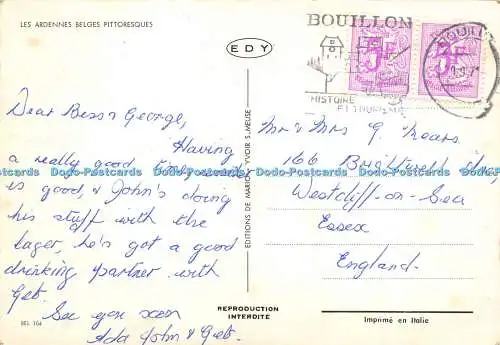 LES ARDENNES BELGES PITTORESQUES
EDY
BOUILLON
HISTOIRE
ET TOURISME
5F
5F
Dear Bess & George,
Having
a really good time,
is good, & John's doing
his stuff with the
lager, he's got a good
drinking partner with
Geb.
See you soon
Ada John & Geb.
EDITIONS DE MARIO, YVOIR S/MEUSE
Mr & Mrs G Mears
166
Westcliff-on-Sea
Essex
England.
REPRODUCTION
INTERDITE
Imprimé en Italie
BEL 104
Dodo-Postcards Dodo-Postcards Dodo-Postcards Dodo-Postcards Dodo-Postcards